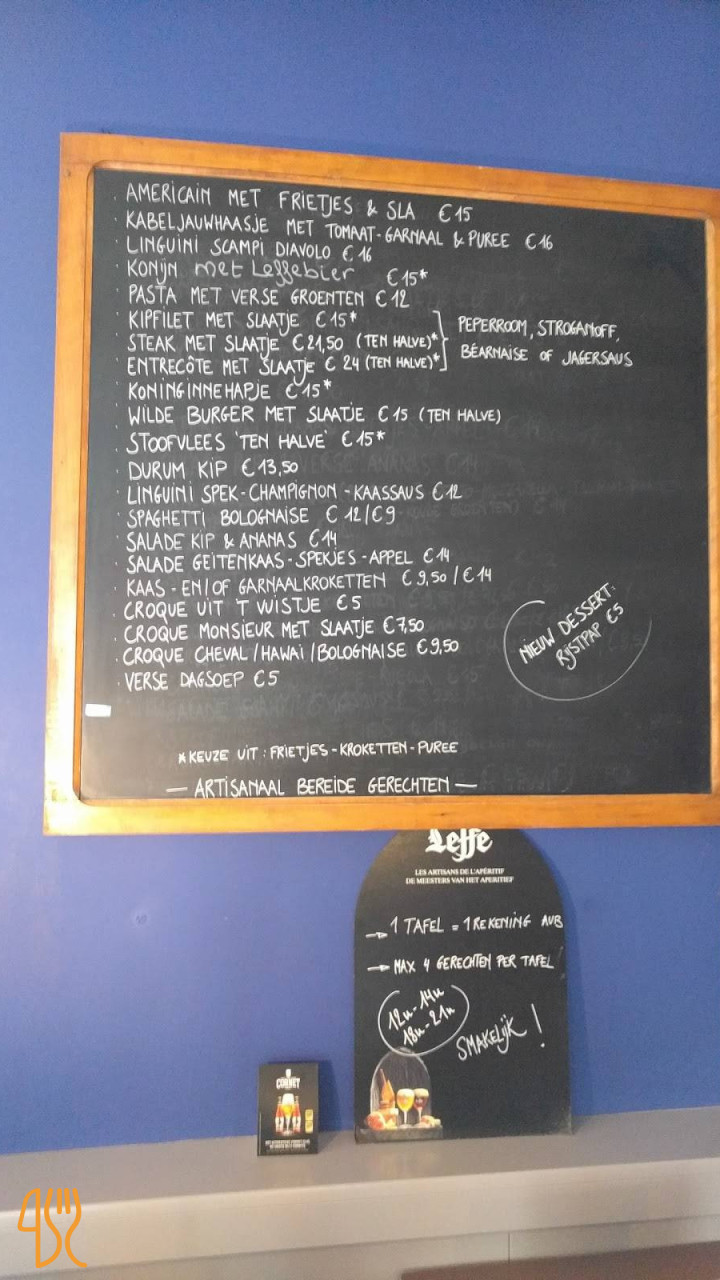 · AMERICAIN MET FRIETJES & SLA €15
· KABELJAUWHAASJE MET TOMAAT-GARNAAL & PUREE €16
· LINGUINI SCAMPI DIAVOLO €16
· KONIJN met Leffebier €15*
· PASTA MET VERSE GROENTEN €12
· KIPFILET MET SLAATJE €15*
· STEAK MET SLAATJE €21,50 (TEN HALVE)*
· ENTRECÔTE MET SLAATJE € 24 (TEN HALVE)*
PEPERROOM, STROGANOFF,
BÉARNAISE OF JAGERSAUS
· KONINGINNEHAPJE €15*
· WILDE BURGER MET SLAATJE €15 (TEN HALVE)
· STOOFVLEES 'TEN HALVE' €15*
· DURUM KIP €13,50
· LINGUINI SPEK-CHAMPIGNON-KAASSAUS €12
· SPAGHETTI BOLOGNAISE €12/€9
· SALADE KIP & ANANAS €14
· SALADE GEITENKAAS-SPEKJES-APPEL €14
· KAAS-EN/OF GARNAALKROKETTEN €9,50/€14
· CROQUE UIT 'T WISTJE €5
· CROQUE MONSIEUR MET SLAATJE €7,50
· CROQUE CHEVAL/HAWAI/BOLOGNAISE €9,50
· VERSE DAGSOEP €5
NIEUW DESSERT:
RIJSTPAP €5
*KEUZE UIT: FRIETJES-KROKETTEN-PUREE
— ARTISANAAL BEREIDE GERECHTEN —
Leffe
LES ARTISANS DE L'APÉRITIF
DE MEESTERS VAN HET APERITIEF
→ 1 TAFEL = 1 REKENING AUB
→ MAX 4 GERECHTEN PER TAFEL!
12u-14u
18u-21u
SMAKELIJK!
CORNET